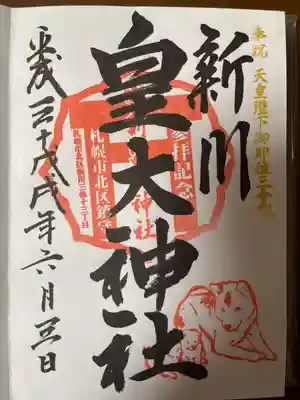 奉祝 天皇陛下 御即位三十年
新川
皇大神社
参拝記念
神社
札幌市北区鎮守
札幌市北区新川三条十三丁目
平成三十戊戌年六月三日